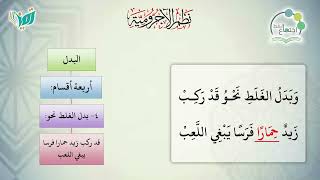 نظم الآجرومية
البدل
أربعة أقسام:
٤- بدل الغلط نحو:
قد ركب زيد حمارا فرسا
يبغي اللعب
وَبَدَلُ الغَلَطِ نَحْوُ قَدْ رَكِبْ
زَيدٌ حِمَارًا فَرَسًا يَبْغِي اللَّعِبْ